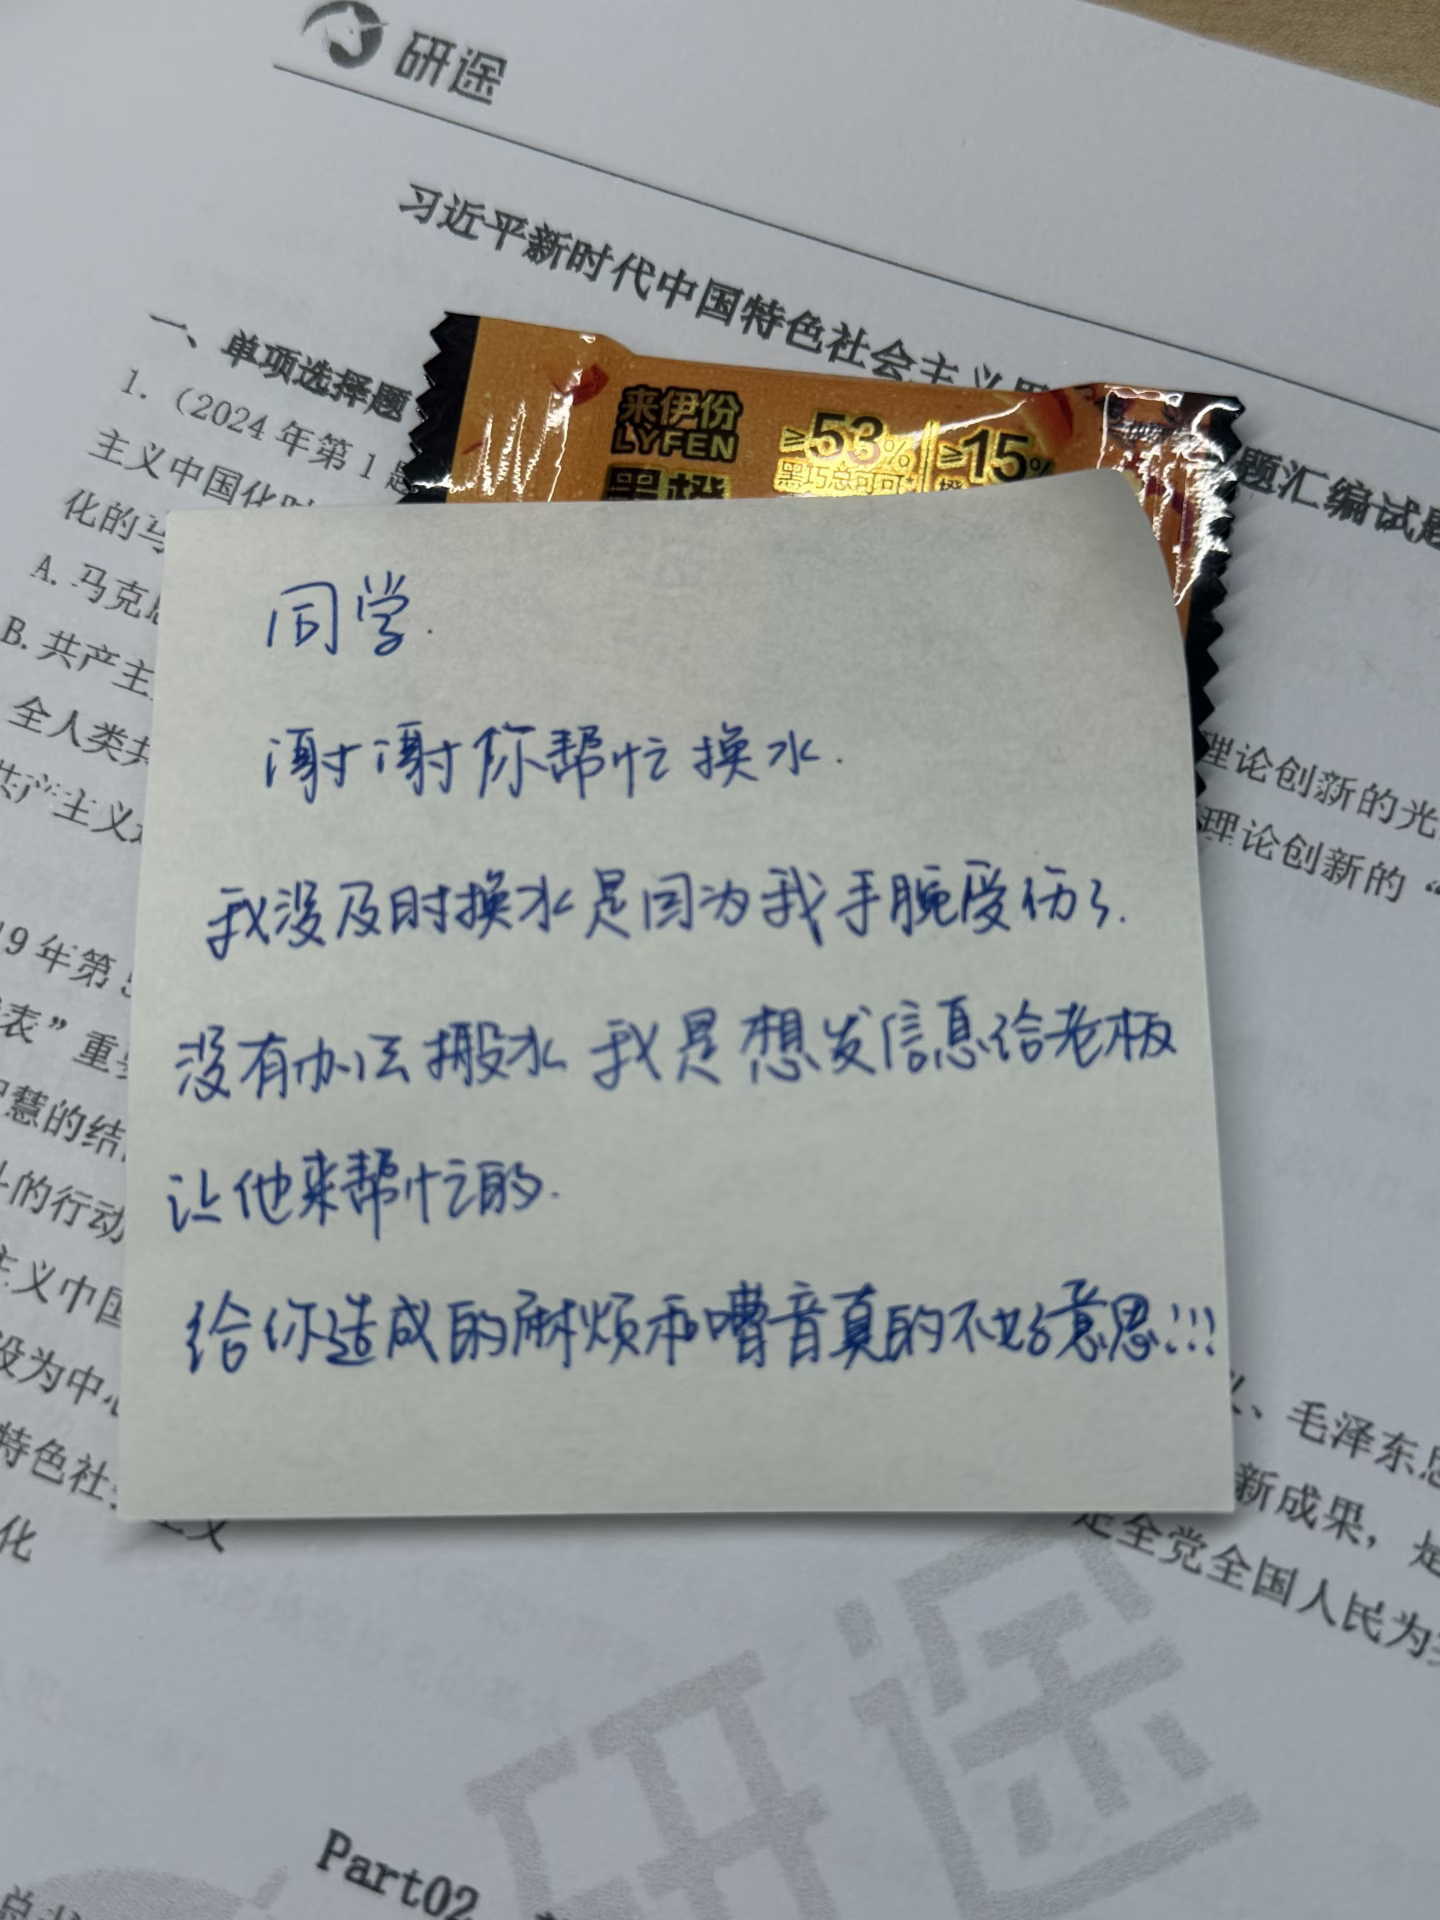 研途
习近平新时代中国特色社会主义
题汇编试题
一、单项选择题
1.（2024 年第 1 题
主义中国化时
化的马
A. 马克思
B. 共产主
全人类共
共产主义
来伊份
LYFEN
黑橙
≥53%
黑巧总可可
≥15%
橙
同学.
谢谢你帮忙换水.
我没及时换水是因为我手腕受伤了.
没有办法搬水 我是想发信息给老板
让他来帮忙的.
给你造成的麻烦和嘈音真的不好意思!!!
理论创新的光
理论创新的“
19 年第 5
表”重要
智慧的结
的行动
主义中国
设为中心
特色社
主义
化
、毛泽东思
新成果，是
是全党全国人民为
研途
Part02